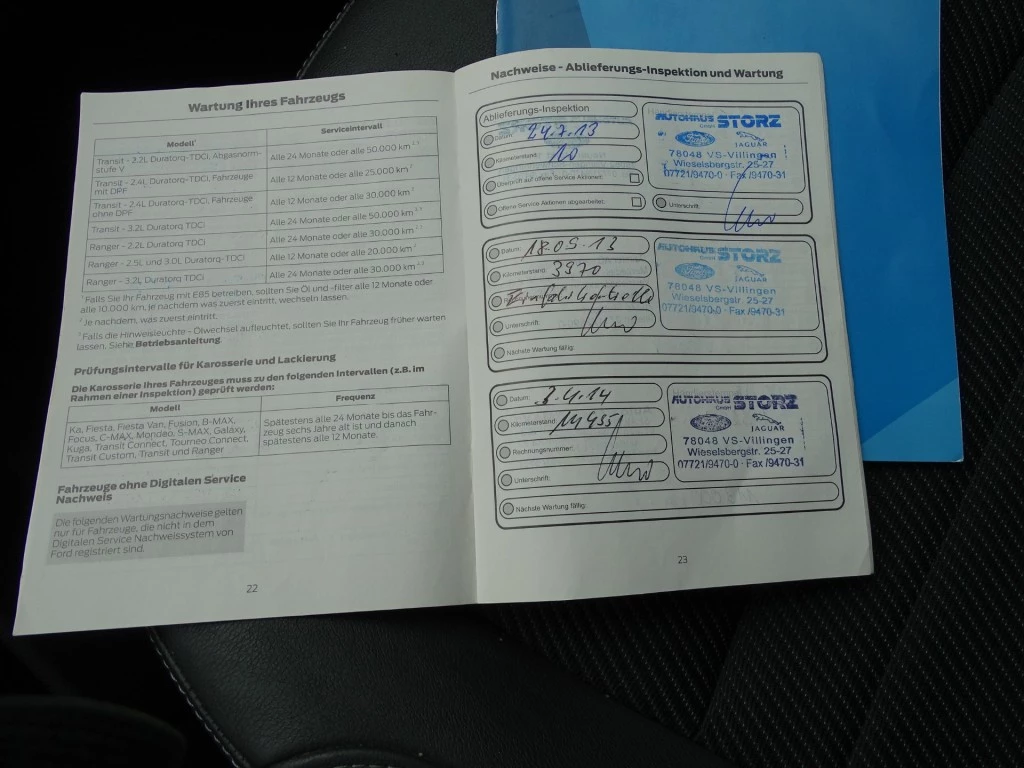 Wartung Ihres Fahrzeugs
Modell¹ Serviceintervall
Transit - 2.2L Duratorq-TDCi, Abgasnormstufe V Alle 24 Monate oder alle 50.000 km
Transit - 2.4L Duratorq-TDCi, Fahrzeuge mit DPF Alle 12 Monate oder alle 25.000 km
Transit - 2.4L Duratorq-TDCi, Fahrzeuge ohne DPF Alle 12 Monate oder alle 30.000 km
Transit - 3.2L Duratorq TDCi Alle 24 Monate oder alle 50.000 km
Ranger - 2.2L Duratorq TDCi Alle 24 Monate oder alle 30.000 km
Ranger - 2.5L und 3.0L Duratorq-TDCi Alle 12 Monate oder alle 20.000 km
Ranger - 3.2L Duratorq TDCi Alle 24 Monate oder alle 30.000 km
¹ Falls Sie Ihr Fahrzeug mit E85 betreiben, sollten Sie Öl und -filter alle 12 Monate oder
alle 10.000 km, je nachdem was zuerst eintritt, wechseln lassen.
² Je nachdem, was zuerst eintritt.
³ Falls die Hinweisleuchte - Ölwechsel aufleuchtet, sollten Sie Ihr Fahrzeug früher warten
lassen. Siehe Betriebsanleitung.
Prüfungsintervalle für Karosserie und Lackierung
Die Karosserie Ihres Fahrzeuges muss zu den folgenden Intervallen (z.B. im
Rahmen einer Inspektion) geprüft werden:
Modell Frequenz
Ka, Fiesta, Fiesta Van, Fusion, B-MAX,
Focus, C-MAX, Mondeo, S-MAX, Galaxy,
Kuga, Transit Connect, Tourneo Connect,
Transit Custom, Transit und Ranger
Spätestens alle 24 Monate bis das Fahr-
zeug sechs Jahre alt ist und danach
spätestens alle 12 Monate.
Fahrzeuge ohne Digitalen Service
Nachweis
Die folgenden Wartungsnachweise gelten
nur für Fahrzeuge, die nicht in dem
Digitalen Service Nachweissystem von
Ford registriert sind.
22
Nachweise - Ablieferungs-Inspektion und Wartung
Ablieferungs-Inspektion
Datum: 24.7.13
Kilometerstand: 10
Überprüft auf offene Service Aktionen:
Offene Service Aktionen abgearbeitet:
AUTOHAUS GmbH STORZ
Ford JAGUAR
78048 VS-Villingen
Wieselsbergstr. 25-27
07721/9470-0 · Fax /9470-31
Unterschrift:
Datum: 18.09.13
Kilometerstand: 3970
Unterschrift:
Nächste Wartung fällig:
AUTOHAUS GmbH STORZ
Ford JAGUAR
78048 VS-Villingen
Wieselsbergstr. 25-27
07721/9470-0 · Fax /9470-31
Datum: 3.4.14
Kilometerstand: 14455
Rechnungsnummer:
Unterschrift:
Nächste Wartung fällig:
AUTOHAUS GmbH STORZ
Ford JAGUAR
78048 VS-Villingen
Wieselsbergstr. 25-27
07721/9470-0 · Fax /9470-31
23